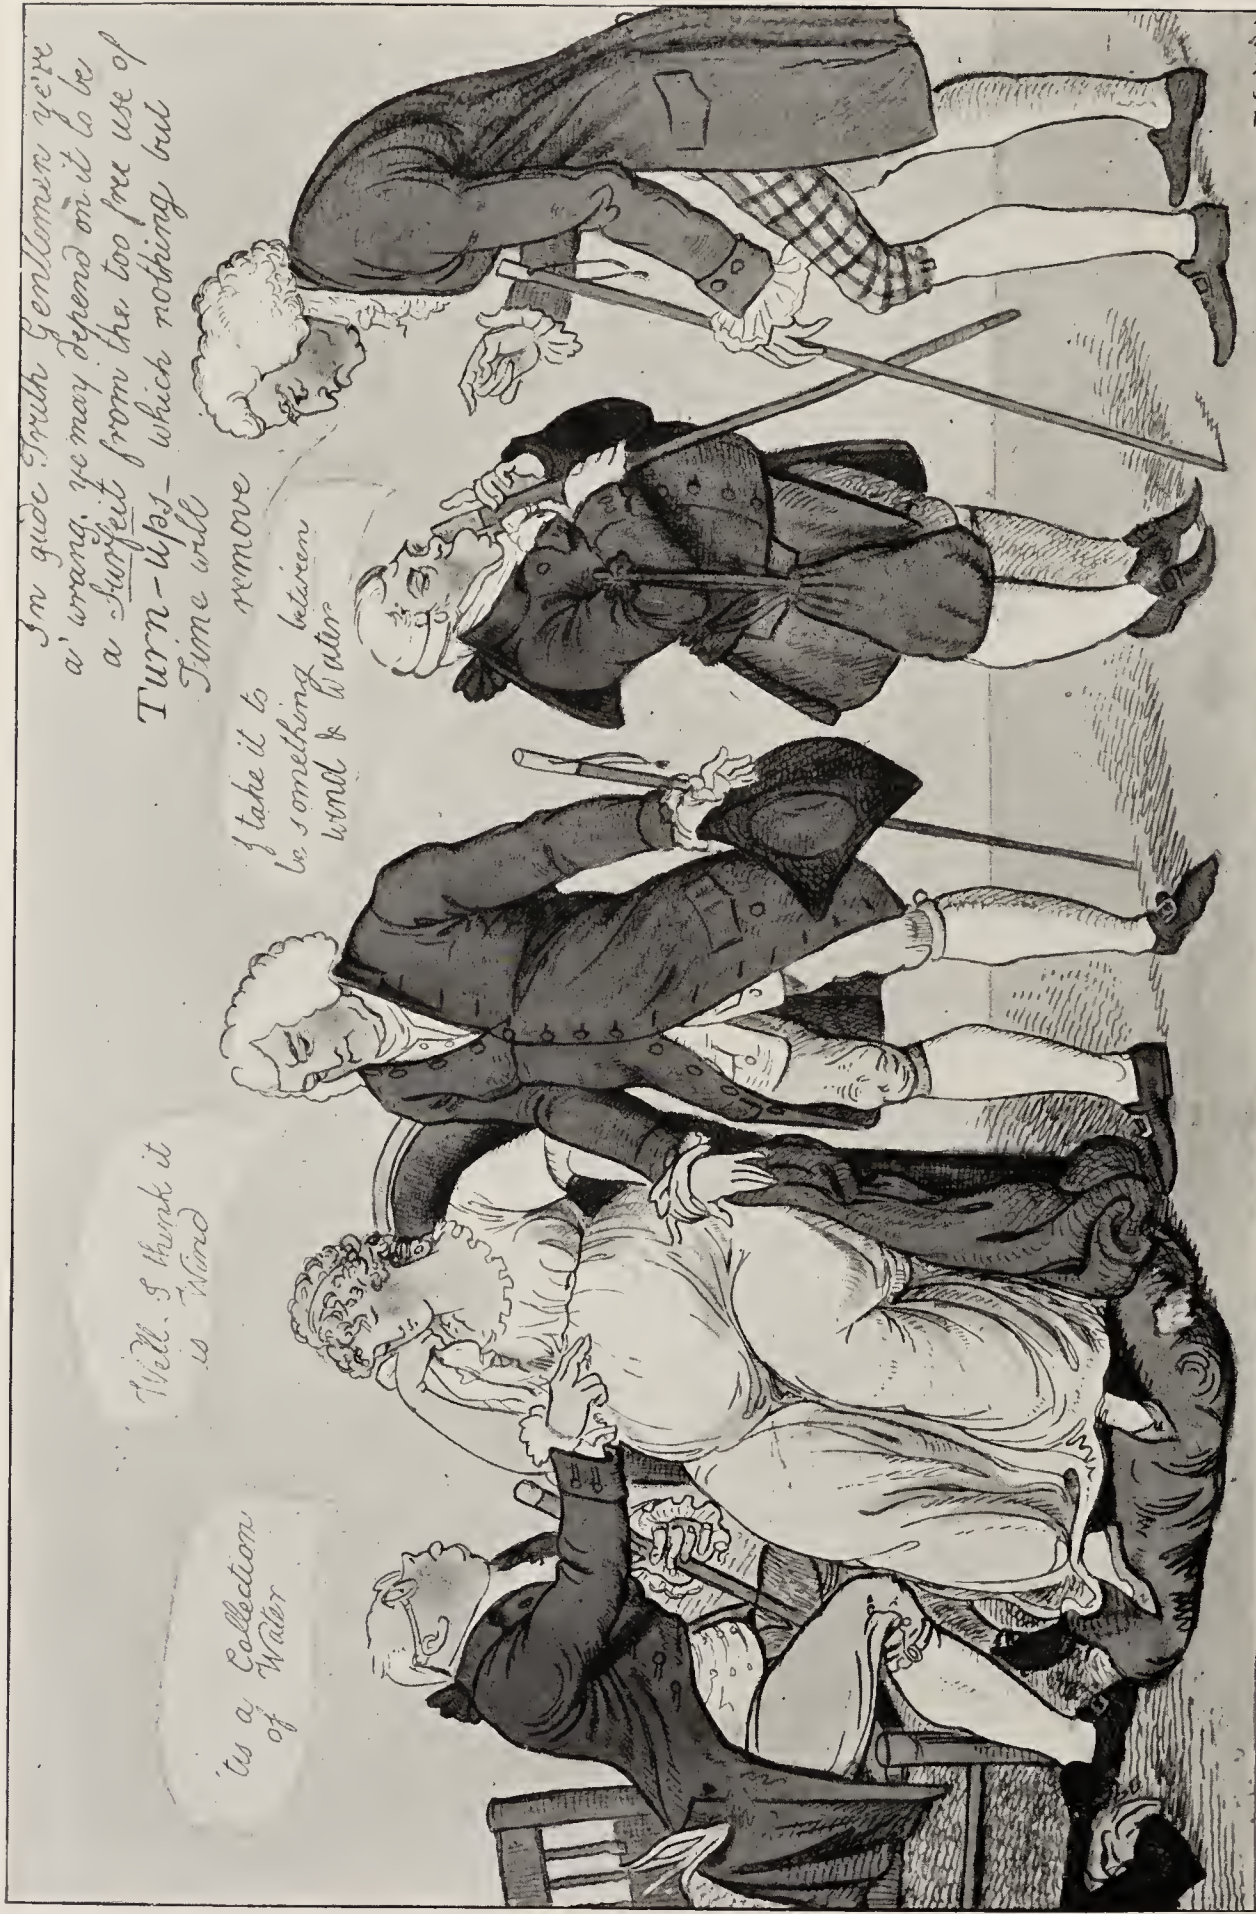 'tis a Collection
of Water
Well. I think it
is Wind
I take it to
be something between
wind & Water
In gude Truth Gentlemen ye're
a' wrang, ye may depend on it to be
a Surfeit from the too free use of
Turn-ups- which nothing but
Time will
remove